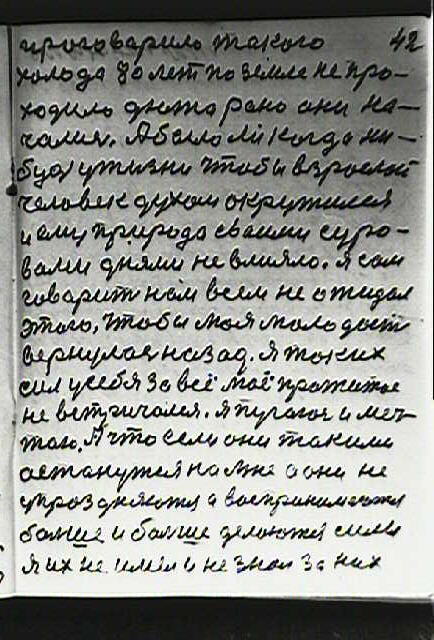 проговарило такого 42
холода 80 лет по земле не про-
ходило дюжа рано они на-
чались. А было ли когда ни-
буд у жизни чтобы взрослой
человек духом окружился
и ему природа своими суро-
вами днями не влияло. я сам
говорит нам всем не ожидал
этого, чтобы моя молодость
вернулас назад. Я таких
сил у себя за всё моё прожитое
не встричался. я пугаюс и меч-
таю. А что если они такими
останутся на мне а они не
упраздняются а воспринимаются
болше и болше делаются силы
я их не имел и не знал за них